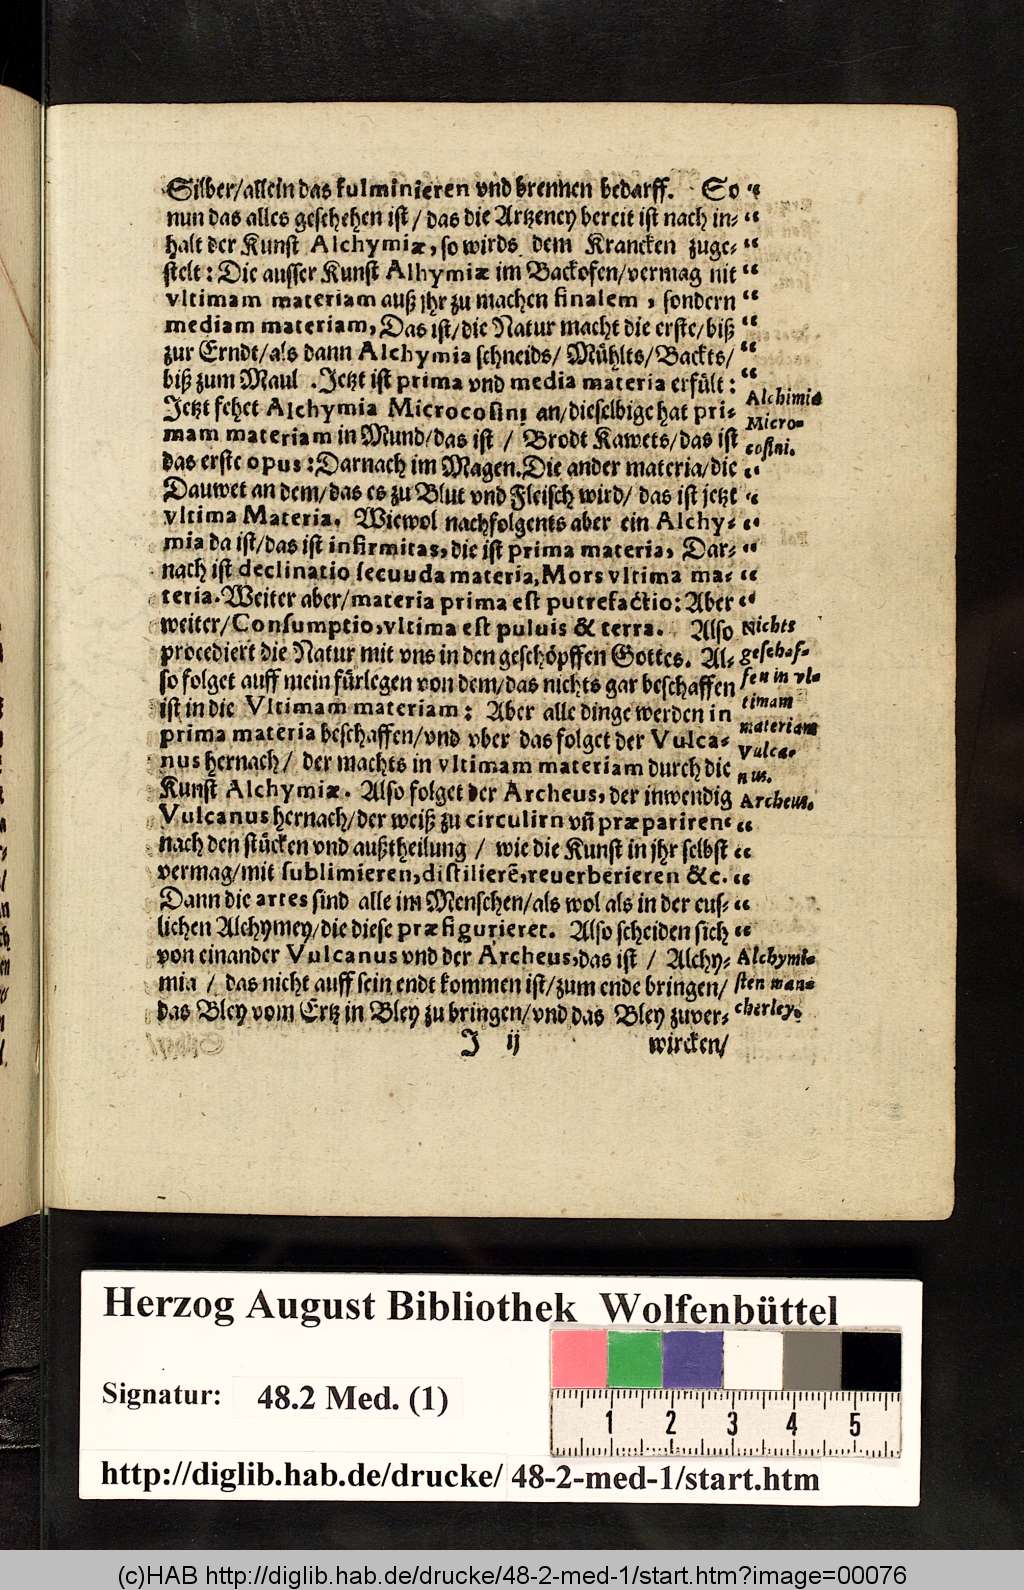 Silber/allein das fulminieren vnd brennen bedarff. So
nun das alles geschehen ist/das die Artzeney bereit ist nach in-
halt der Kunst Alchymiæ, so wirds dem Krancken zuge-
stelt: Die ausser Kunst Alhymiæ im Backofen/vermag nit
vltimam materiam auß jhr zu machen finalem, sondern
mediam materiam, Das ist/die Natur macht die erste/biß
zur Erndt/als dann Alchymia schneids/Mühlts/Backts/
biß zum Maul. Jetzt ist prima vnd media materia erfült:
Jetzt fehet Alchymia Microcosmi an/dieselbige hat pri-
mam materiam in Mund/das ist / Brodt Kawets/das ist
das erste opus: Darnach im Magen. Die ander materia/die
Dauwet an dem/das es zu Blut vnd Fleisch wird/ das ist jetzt
vltima Materia. Wiewol nachfolgents aber ein Alchy-
mia da ist/das ist infirmitas, die ist prima materia, Dar-
nach ist declinatio secuuda materia, Mors vltima ma-
teria. Weiter aber/materia prima est putrefactio: Aber
weiter/Consumptio, vltima est puluis & terra. Also
procediert die Natur mit vns in den geschöpffen Gottes. Al-
so folget auff mein fürlegen von dem/das nichts gar beschaffen
ist in die Vltimam materiam: Aber alle dinge werden in
prima materia beschaffen/vnd vber das folget der Vulca-
nus hernach/ der machts in vltimam materiam durch die
Kunst Alchymiæ. Also folget der Archeus, der inwendig
Vulcanus hernach/der weiß zu circulirn vñ præpariren
nach den stücken vnd außtheilung / wie die Kunst in jhr selbst
vermag/mit sublimieren, distilierē, reuerberieren &c.
Dann die artes sind alle im Menschen/als wol als in der eus-
lichen Alchymey/die diese præfigurieret. Also scheiden sich
von einander Vulcanus vnd der Archeus, das ist / Alchy-
mia / das nicht auff sein endt kommen ist/zum ende bringen/
das Bley vom Ertz in Bley zu bringen/vnd das Bley zuver-
J ij wircken/
Alchimia
Micro-
cosmi.
Nichts
geschaf-
fen in vl-
timam
materiam
Vulca-
nus.
Archeus.
Alchymi-
sten man-
cherley.
Herzog August Bibliothek Wolfenbüttel
Signatur: 48.2 Med. (1)
1 2 3 4 5
http://diglib.hab.de/drucke/ 48-2-med-1/start.htm
(c)HAB http://diglib.hab.de/drucke/48-2-med-1/start.htm?image=00076